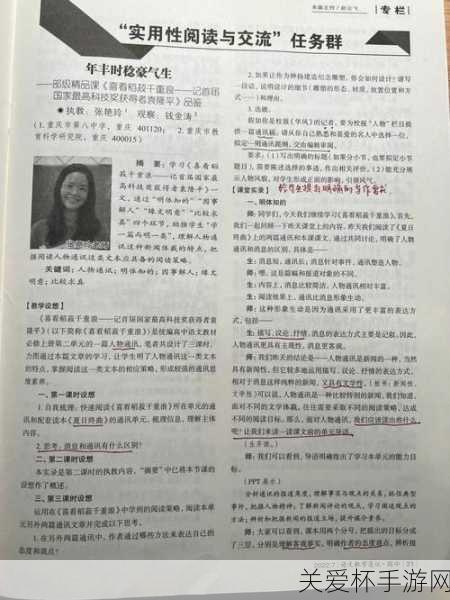 本期主持/赵宏飞
专栏
“实用性阅读与交流”任务群
年丰时稔豪气生
——部级精品课《喜看稻菽千重浪——记首届
国家最高科技奖获得者袁隆平》品鉴
执教：张艳玲¹ 观察：钱金涛²
（1.重庆市第八中学，重庆 401120；2.重庆市教
育科学研究院，重庆 400015）
摘 要：学习《喜看稻
菽千重浪——记首届国家最
高科技奖获得者袁隆平》一
文，通过“明体知的”“因事
解人”“缘文明意”“比较求
真”四个环节，助推学生“学
一篇而明一类”，理解人物通
讯这种新闻体裁的特点，把
握阅读人物通讯这类文本应具备的阅读策略。
关键词：人物通讯；明体知的；因事解人；缘文
明意；比较求真
【教学设想】
《喜看稻菽千重浪——记首届国家最高科技奖获得者袁
隆平》（以下简称《喜看稻菽千重浪》）是统编高中语文教材
必修上册第二单元的一篇人物通讯，笔者共设计了三课时，
力图通过本篇文章的学习，让学生明了人物通讯这一类文本
的特点，掌握阅读这一类文本的相应策略，形成较强的通讯思
维素养。
一、第一课时设想
1.自我梳理：快速阅读《喜看稻菽千重浪》所在单元的通
讯和配套读本《夏日终曲》的通讯单元，梳理信息，理解主体
内容。
2.思考：消息和通讯有什么区别？
二、第二课时设想
本实录是第二课时的执教内容，“摘要”中已将本节课的
设想作了概述。
三、第三课时设想
运用在《喜看稻菽千重浪》中学到的阅读策略，阅读本单
元另外两篇通讯文章并完成以下思考。
1.在另外两篇通讯中，作者通过哪些方法来表达自己的
态度和观点？
2.如果让作为钟扬建造纪念雕塑，你会如何设计？请写
一段话，说明设计的细节（雕塑的形态、材质、放置位置和方
式……）和理由。
3.选做。
假如你是校报《学风》的记者，要为校报“人物”栏目撰
拟一篇通讯稿，请从你自己熟悉和喜爱的名人中选择一位，
拟定一则通讯提纲，交由编辑审阅。
要求：（1）写出明确的标题（如果分小节，也要拟定小节
题）；（2）简要陈述选择的事件，作出相关评价；（3）能充分展
示人物风貌，对学生形成正面的影响，引领风气。
【课堂实录】
一、明体知的
师：同学们，今天我们继续学习《喜看稻菽千重浪》。首先，
我们一起回顾一下昨天课堂上的内容，昨天我们阅读了《夏
日终曲》上的两篇通讯和本课课文，通过共同讨论，明确了人物
通讯和消息的区别，具体是——
生：消息短，通讯长；消息针对事件，通讯塑造人物。
师：嗯，这是篇幅和报道对象的不同。
生：内容上，消息比较简洁，人物通讯相对丰富。
生：阅读效果上，通讯比消息形象生动。
师：这种形象生动是因为通讯采用了更丰富的表达方
式，包括——
生：描写、议论、抒情。消息的表达方式主要是记叙。因此，
人物通讯更具有主观性，消息更客观。
师：我们昨天的结论是——人物通讯是新闻的一种，当然
具有新闻性，但它较多地运用描写、议论、抒情的表达方式，
相对于消息这样纯粹的新闻，又具有文学性（板书：新闻性，
文学性）可以说，人物通讯是一种比较特别的新闻，我们知道，
面对不同的文学体裁，往往需要采取不同的阅读策略，达成
不同的阅读目标。那么，面对人物通讯，我们应该读出些什么
呢？让我们来读一读课文前的单元导语。
（生齐读）
师：我们可以看到，导语明确指出了学习本单元的能力目
标。
（PPT展示）
分析通讯的报道角度，理解事实与观点的关系，抓住典型事
件，把握人物精神；了解新闻评论的观点，学习阐述观点的
方法；辨析和把握新闻的报道立场，提升媒介素养。
师：大家可以看到，课本用两个分号，把提出的目标分成
了三，分别是理解客观事实，明确作者的态度观点，辨析报
2022.7·语文教学通讯·高中 | 21
关爱杯手游网